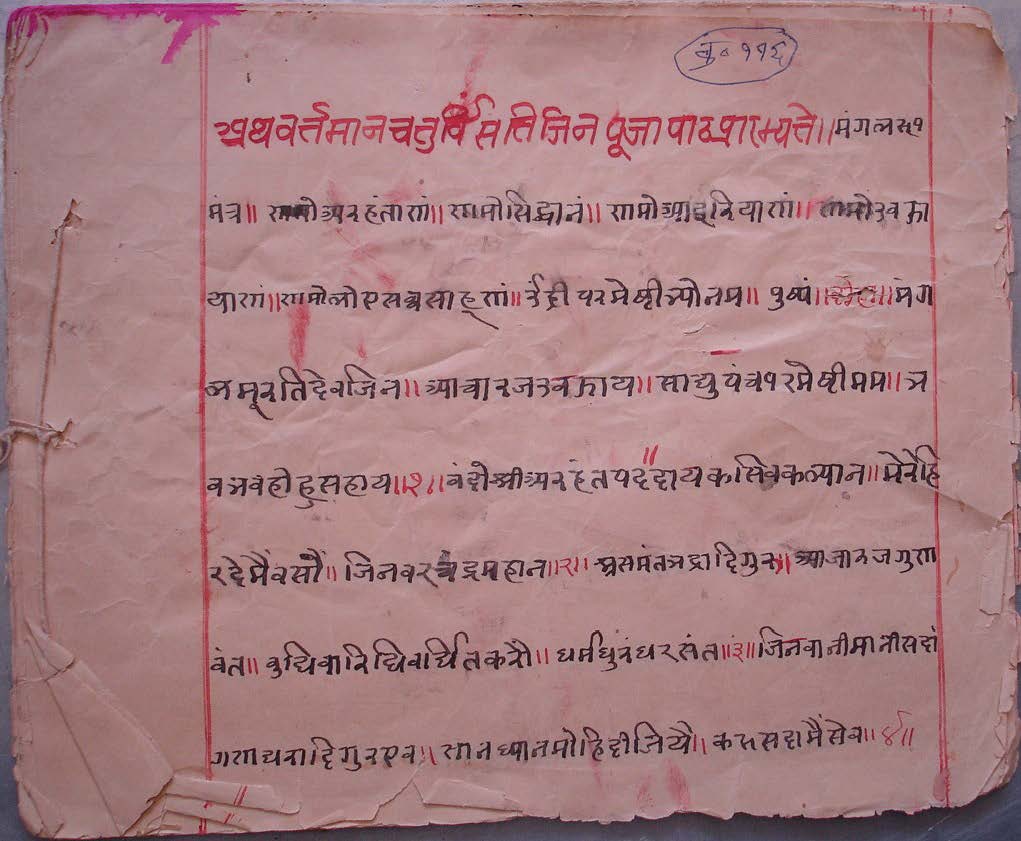 बु॰ ११६
अथ वर्त्तमान चतुर्विंसति जिन पूजा पाठ प्रारम्यत्ते॥ मंगल
मंत्र॥ णमोअरहंताणं॥ णमोसिद्धानं॥ णमोआइरियाणं॥ णमोउवझा
याणं॥ णमोलोएसव्वसाहूणं॥ उँह्रीपरमेष्टीभ्योनम॥ पुष्पं॥ मंग
लमूरतिदेवजिन॥ आचारजउवझाय॥ साधुपंचपरमेष्टीमम॥ भ
वभवहोहुसहाय॥१॥ वंदोश्रीअरहंतपद॥ दायकसिवकल्यान॥ मेरेहि
रदेमैंवसौं॥ जिनवरचंद्रमहान॥२॥ श्रुसमंतभद्रादिगुरु॥ आचारजगुण
वंत॥ वुधिवारिधिवर्धितकरौ॥ धर्मधुरंधरसंत॥३॥ जिनवानीमानीसदां
गणधरादिगुरएव॥ ग्यानध्यानमोहिदीजियै॥ करूसदामैंसेव॥४॥